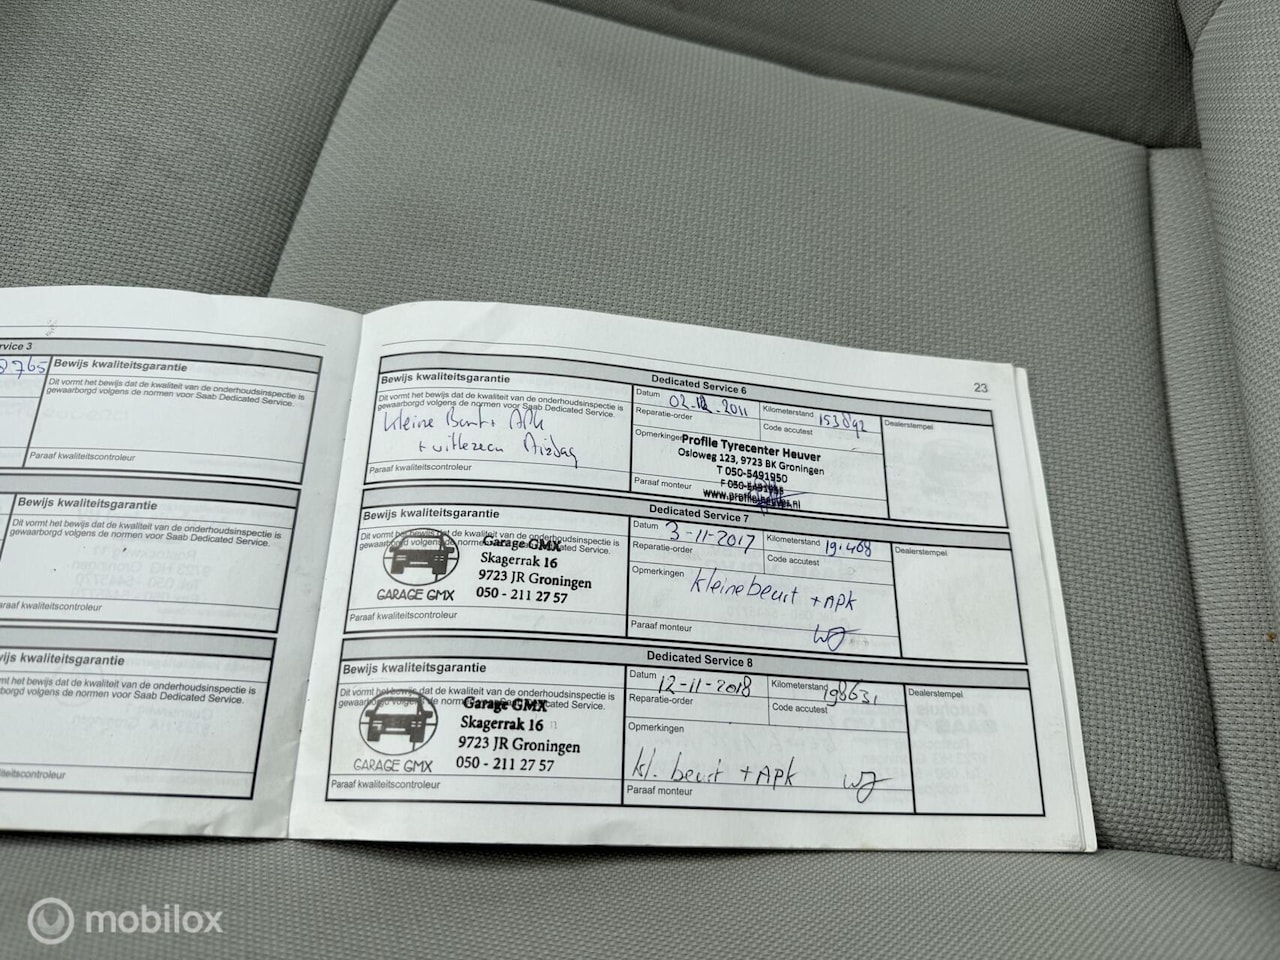 rvice 3
Bewijs kwaliteitsgarantie
Dit vormt het bewijs dat de kwaliteit van de onderhoudsinspectie is
gewaarborgd volgens de normen voor Saab Dedicated Service.
Paraaf kwaliteitscontroleur
Bewijs kwaliteitsgarantie
Dit vormt het bewijs dat de kwaliteit van de onderhoudsinspectie is
gewaarborgd volgens de normen voor Saab Dedicated Service.
araaf kwaliteitscontroleur
wijs kwaliteitsgarantie
mt het bewijs dat de kwaliteit van de onderhoudsinspectie is
borgd volgens de normen voor Saab Dedicated Service.
liteitscontroleur
23
Dedicated Service 6
Bewijs kwaliteitsgarantie
Dit vormt het bewijs dat de kwaliteit van de onderhoudsinspectie is
gewaarborgd volgens de normen voor Saab Dedicated Service.
kleine Beurt + APK
+ uitlezen Airbag
Paraaf kwaliteitscontroleur
Datum 02-12-2011
Kilometerstand 153892
Reparatie-order
Code accutest
Dealerstempel
Opmerkingen
Profile Tyrecenter Heuver
Osloweg 123, 9723 BK Groningen
T 050-5491950
www.profileheuver.nl
Paraaf monteur
Dedicated Service 7
Bewijs kwaliteitsgarantie
Dit vormt het bewijs dat de kwaliteit van de onderhoudsinspectie is
gewaarborgd volgens de normen voor Saab Dedicated Service.
Garage GMX
Skagerrak 16
9723 JR Groningen
050 - 211 27 57
GARAGE GMX
Paraaf kwaliteitscontroleur
Datum 3-11-2017
Kilometerstand 191408
Reparatie-order
Code accutest
Dealerstempel
Opmerkingen
kleine beurt + APK
Paraaf monteur
Dedicated Service 8
Bewijs kwaliteitsgarantie
Dit vormt het bewijs dat de kwaliteit van de onderhoudsinspectie is
gewaarborgd volgens de normen voor Saab Dedicated Service.
Garage GMX
Skagerrak 16
9723 JR Groningen
050 - 211 27 57
GARAGE GMX
Paraaf kwaliteitscontroleur
Datum 12-11-2018
Kilometerstand 198631
Reparatie-order
Code accutest
Dealerstempel
Opmerkingen
kl. beurt + APK
Paraaf monteur
mobilox